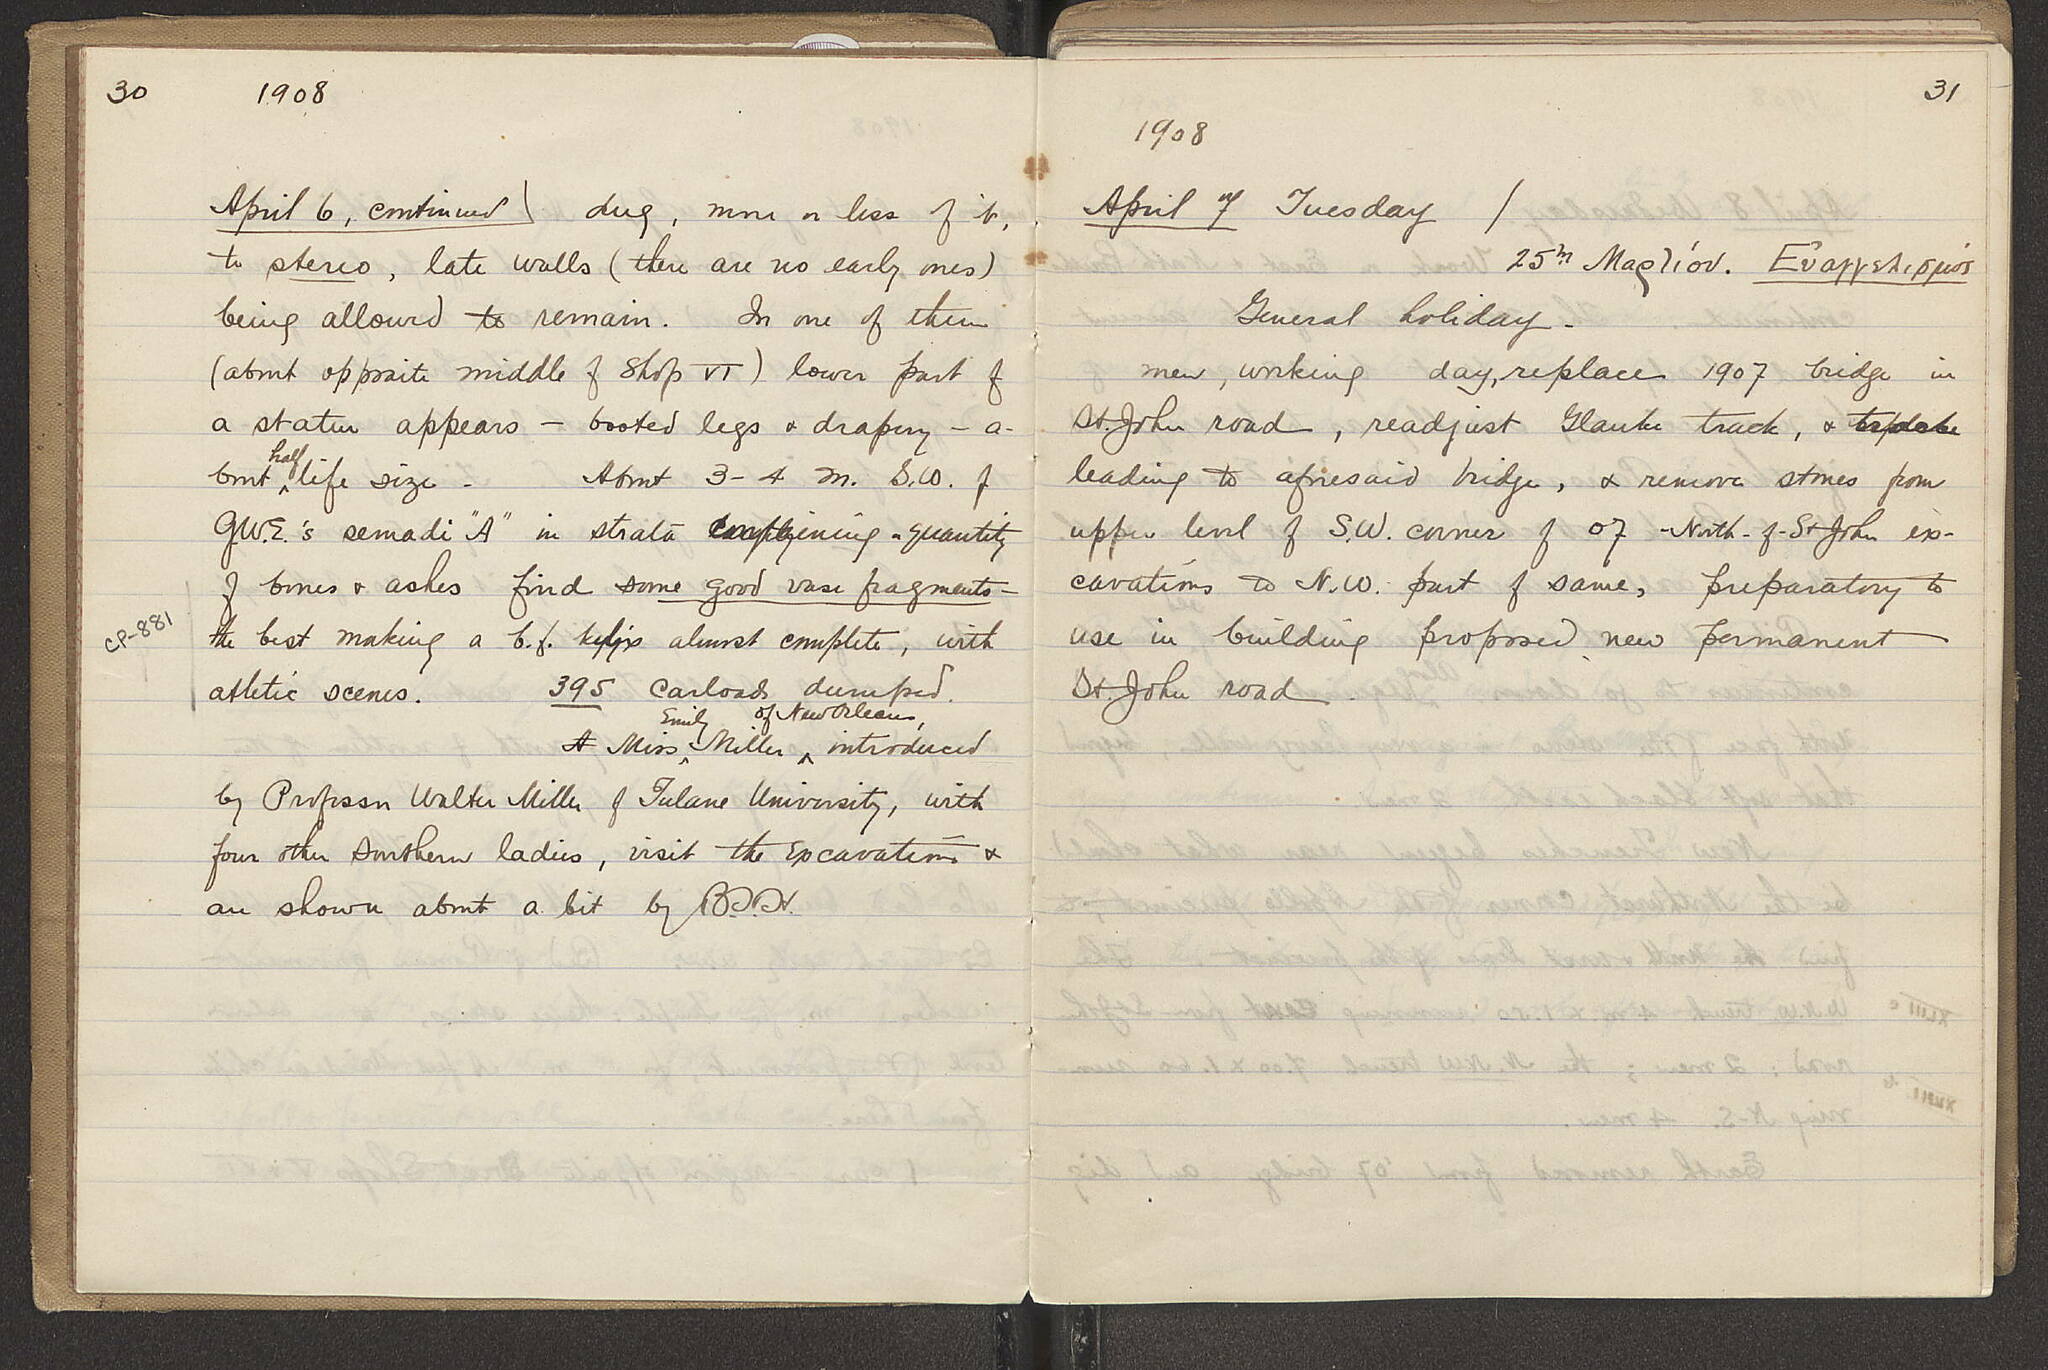 30 1908
April 6, continued) dug, more or less of it,
to stereo, late walls (there are no early ones)
being allowed to remain. In one of them
(about opposite middle of Shop VI) lower part of
a statue appears – booted legs & drapery – a-
bout half life size – About 3-4 m. S.W. of
G.W.E.'s semadi "A" in strata containing a quantity
of bones & ashes find some good vase fragments –
CP-881
the best making a b.f. kylix almost complete, with
athletic scenes. 395 carloads dumped.
Emily of New Orleans,
A Miss Miller, introduced
by Professor Walter Miller of Tulane University, with
four other Southern ladies, visit the Excavations &
are shown about a bit by B.H.H.
31
1908
April 7 Tuesday /
25th Μαρτίου. Εὐαγγελισμός
General holiday –
men, working day, replace 1907 bridge in
St. John road, readjust Glauke track, &
leading to aforesaid bridge, & remove stones from
upper level of S.W. corner of 07 -North-of-St John ex-
cavations to N.W. part of same, preparatory to
use in building proposed new permanent
St. John road.